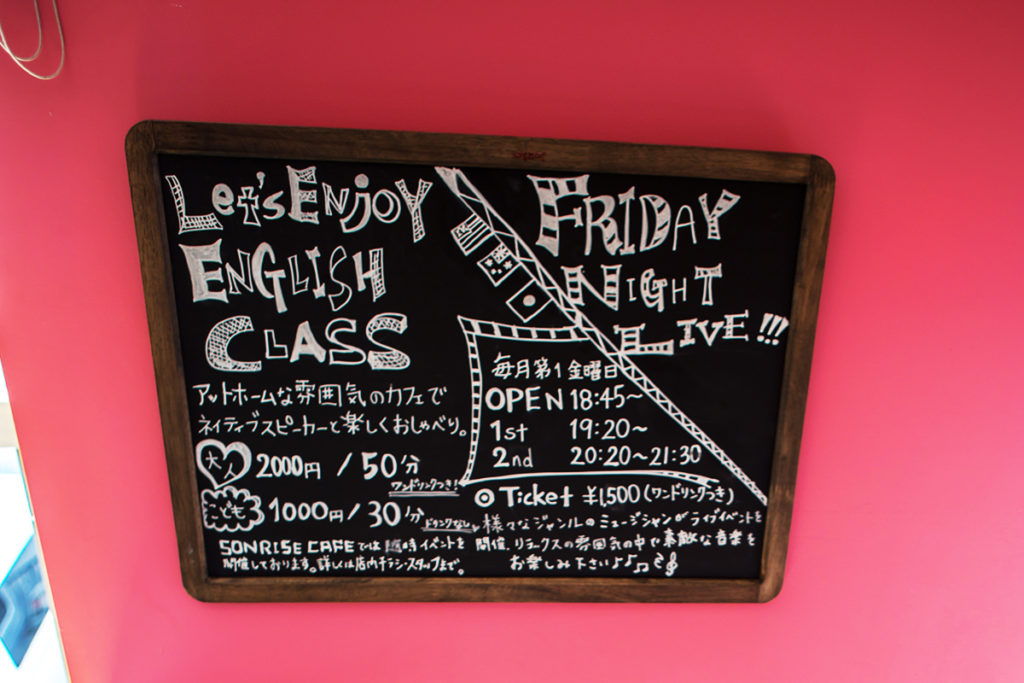 Let's Enjoy
English
Class
アットホームな雰囲気のカフェで
ネイティブスピーカーと楽しくおしゃべり。
大人 2000円 / 50分
ワンドリンクつき!
こども 1000円 / 30分
ドリンクなし
SONRISE CAFEでは随時イベントを
開催しております。詳しくは店内チラシ・スタッフまで。
Friday
Night
Live!!!
毎月第1金曜日
OPEN 18:45~
1st 19:20~
2nd 20:20~21:30
◎ Ticket ¥1,500(ワンドリンクつき)
様々なジャンルのミュージシャンがライブイベントを
開催. リラックスの雰囲気の中で素敵な音楽を
お楽しみ下さい♪♪♫